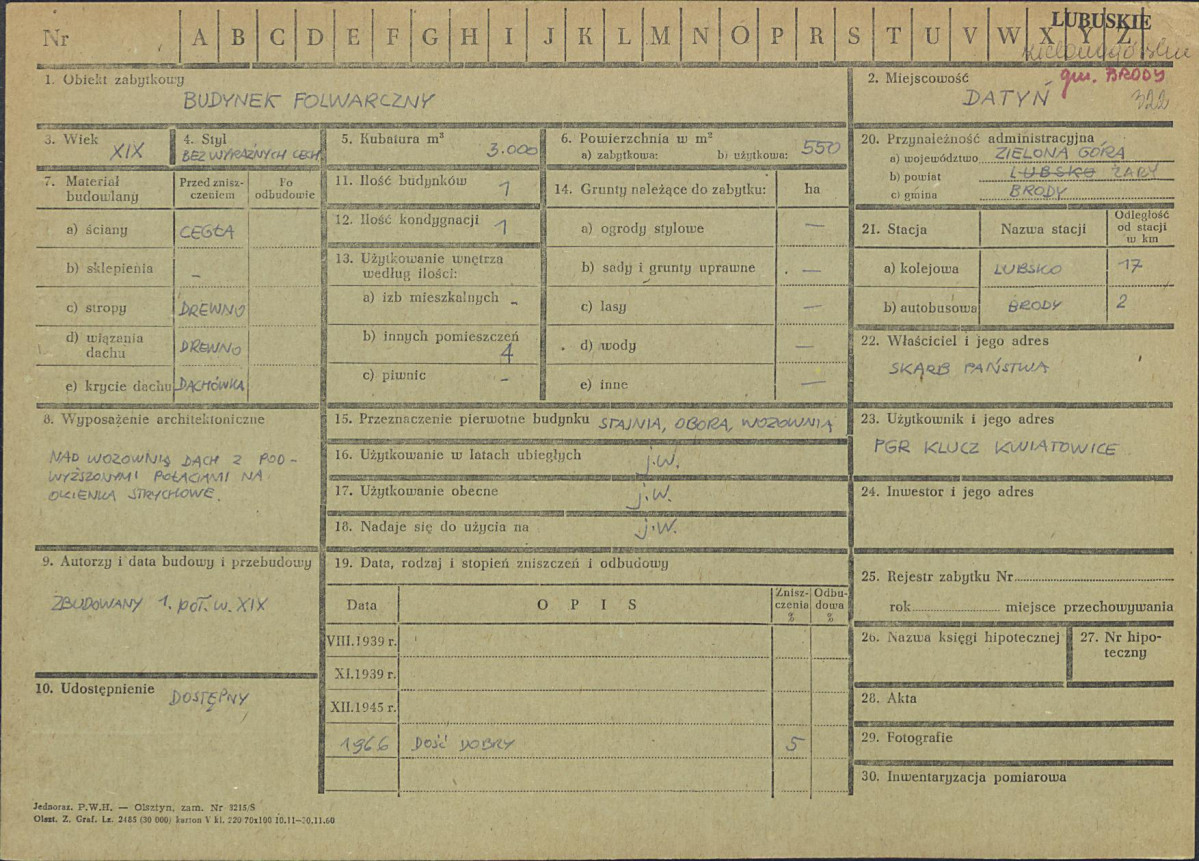 LUBUSKIE
Nr A B C D E F G H I J K L M N O P R S T U V W X Y Z
gm. BRODY
322
1. Obiekt zabytkowy
BUDYNEK FOLWARCZNY
2. Miejscowość
DATYŃ
3. Wiek
XIX
4. Styl
BEZ WYRAŹNYCH CECH
5. Kubatura m³
3.000
6. Powierzchnia w m²
a) zabytkowa: b) użytkowa: 550
7. Materiał budowlany
Przed zniszczeniem
Po odbudowie
a) ściany CEGŁA
b) sklepienia –
c) stropy DREWNO
d) wiązania dachu DREWNO
e) krycie dachu DACHÓWKA
11. Ilość budynków 1
12. Ilość kondygnacji 1
13. Użytkowanie wnętrza według ilości:
a) izb mieszkalnych –
b) innych pomieszczeń 4
c) piwnic –
14. Grunty należące do zabytku: ha
a) ogrody stylowe —
b) sady i grunty uprawne —
c) lasy —
d) wody —
e) inne —
20. Przynależność administracyjna
a) województwo ZIELONA GÓRA
b) powiat LUBSKO ŻARY
c) gmina BRODY
21. Stacja Nazwa stacji Odległość od stacji w km
a) kolejowa LUBSKO 17
b) autobusowa BRODY 2
22. Właściciel i jego adres
SKARB PAŃSTWA
8. Wyposażenie architektoniczne
NAD WOZOWNIĄ DACH Z POD-
WYŻSZONYMI POŁACIAMI NA
OKIENKA STRYCHOWE.
15. Przeznaczenie pierwotne budynku STAJNIA, OBORA, WOZOWNIA
16. Użytkowanie w latach ubiegłych j.w.
17. Użytkowanie obecne j.w.
18. Nadaje się do użycia na j.w.
23. Użytkownik i jego adres
PGR KLUCZ KWIATOWICE
24. Inwestor i jego adres
9. Autorzy i data budowy i przebudowy
ZBUDOWANY 1. POŁ. W. XIX
10. Udostępnienie DOSTĘPNY
19. Data, rodzaj i stopień zniszczeń i odbudowy
Data OPIS Zniszczenia % Odbudowa %
VIII.1939 r.
XI.1939 r.
XII.1945 r.
1966 DOŚĆ DOBRY 5
25. Rejestr zabytku Nr
rok miejsce przechowywania
26. Nazwa księgi hipotecznej
27. Nr hipoteczny
28. Akta
29. Fotografie
30. Inwentaryzacja pomiarowa
Jednoraz. P.W.H. — Olsztyn, zam. Nr 3215/S
Olszt. Z. Graf. Lz. 2485 (30 000) karton V kl. 220 70x100 10.11—30.11.60